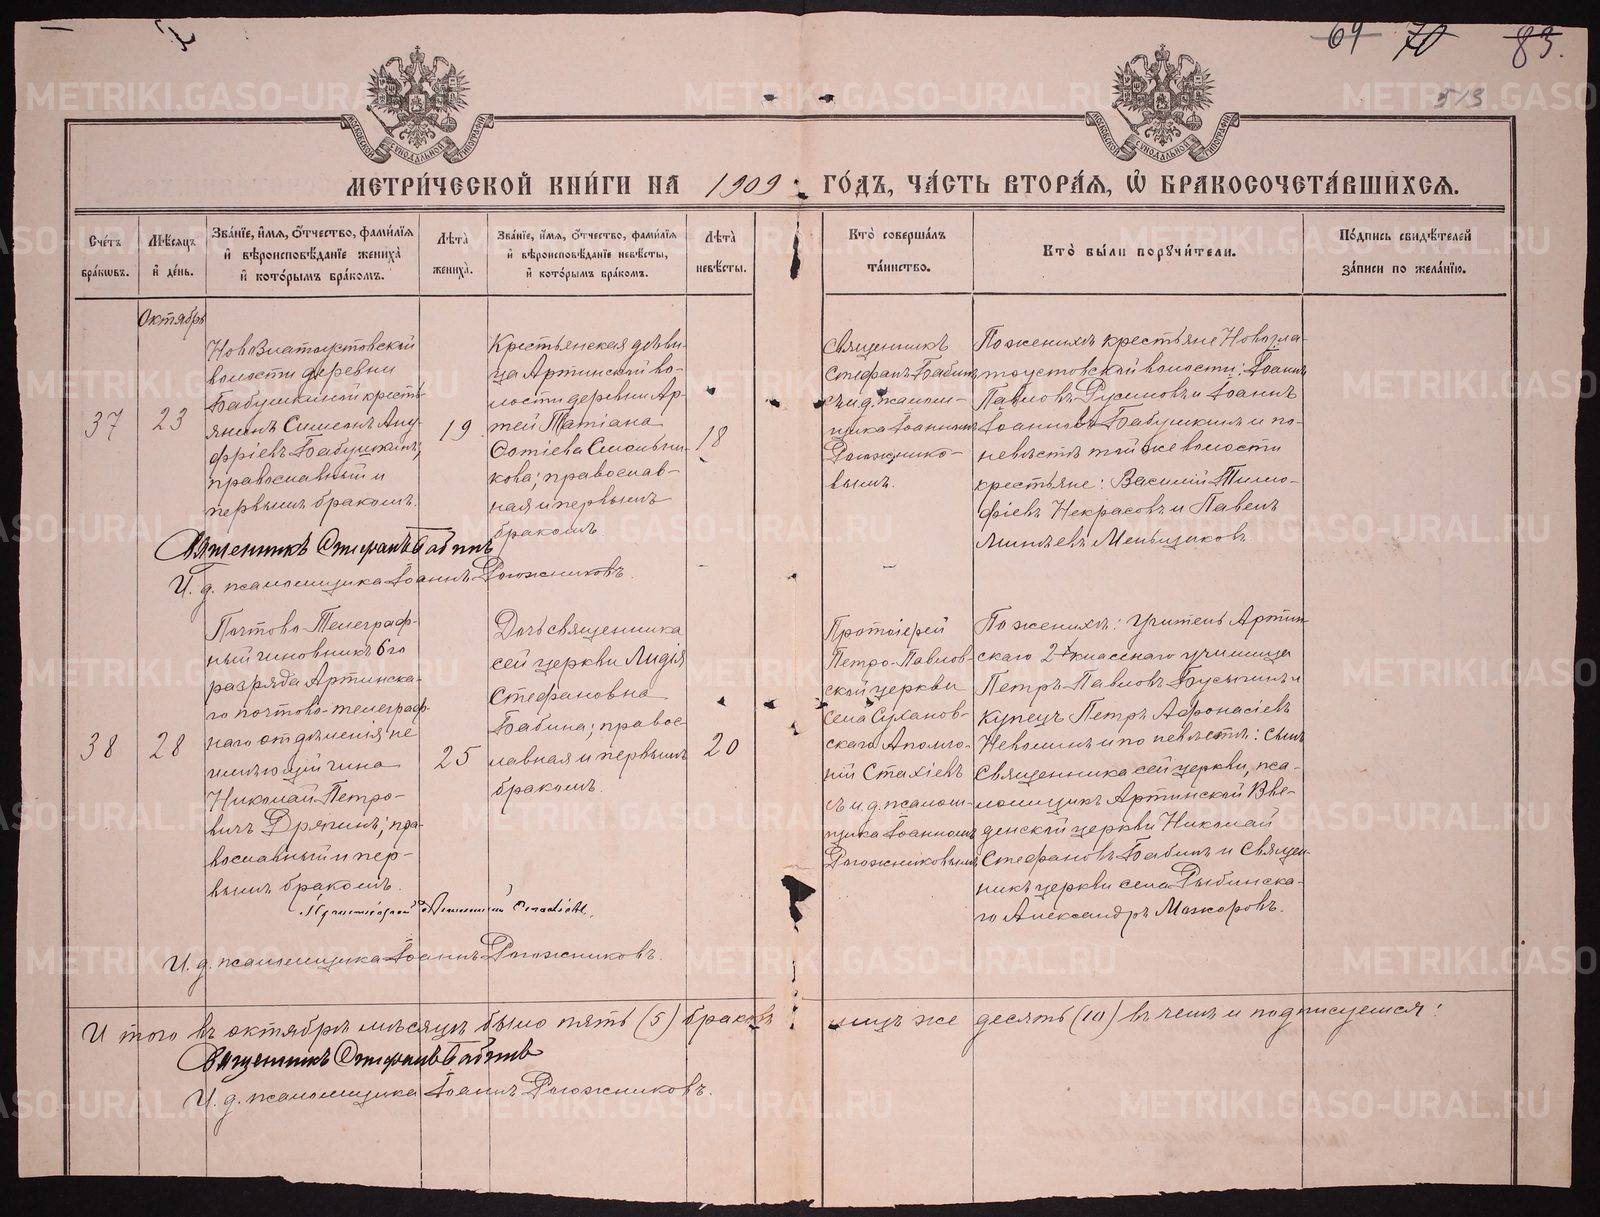 69 70 83.
513
МЕТРИ́ЧЕСКОЙ КНИ́ГИ НА 1909 ГО́ДЪ, ЧА́СТЬ ВТОРА́Я, Ѽ БРАКОСОЧЕТА́ВШИХСЯ.
Сче́тъ бра́кѡвъ.
Мѣ́сяцъ и҆ де́нь.
Зва́нїе, и҆́мя, ѻ҆́тчество, фами́лїя и҆ вѣроисповѣ́данїе жениха̀ и҆ кото́рымъ бра́комъ.
Лѣ́та жениха̀.
Зва́нїе, и҆́мя, ѻ҆́тчество, фами́лїя и҆ вѣроисповѣ́данїе невѣ́сты, и҆ кото́рымъ бра́комъ.
Лѣ́та невѣ́сты.
Кто̀ соверша́лъ та́инство.
Кто̀ бы́ли поручи́тели.
По́дпись свидѣ́телей за́писи по жела́нїю.
Октябрь
37
23
Новозлатоустовской
волости деревни
Бабушкиной кресть-
янинъ Симеонъ Ану-
фріевъ Бабушкинъ;
православный и
первымъ бракомъ.
19.
Крестьянская дѣви-
ца Артинской во-
лости деревни Ар-
тей Татіана
Сотіева Смольни-
кова; православ-
ная и первымъ
бракомъ
18
Священникъ
Стефанъ Бабинъ
съ и.д. псалом-
щика Іоанномъ
Рогожнико-
вымъ.
По женихѣ крестьяне Новозла-
тоустовской волости: Іоаннъ
Павловъ Русиновъ и Іоаннъ
Іоанновъ Бабушкинъ и по
невѣстѣ той же волости
крестьяне: Василій Тимо-
фіевъ Некрасовъ и Павелъ
Минѣевъ Меньщиковъ.
Священникъ Стефанъ Бабинъ
И. д. псаломщика Іоаннъ Рогожниковъ.
38
28
Почтово-Телеграф-
ный чиновникъ 6го
разряда Артинска-
го почтово-телеграф-
наго отдѣленія не
имѣющій чина
Николай Петро-
вичъ Дрягинъ; пра-
вославный и пер-
вымъ бракомъ.
25
Дочь священника
сей церкви Лидія
Стефановна
Бабина; правос-
лавная и первымъ
бракомъ.
20
Протоіерей
Петро-Павлов-
ской церкви
села Сухановс-
скаго Аполло-
ній Стахіевъ
съ и.д. псалом-
щика Іоанномъ
Рогожниковымъ
По женихѣ: Учитель Артин-
скаго 2х класснаго училища
Петръ Павловъ Бусыгинъ и
купецъ Петръ Афонасіевъ
Неволинъ и по невѣстѣ: сынъ
Священника сей церкви, пса-
ломщикъ Артинской Вве-
денской церкви Николай
Стефановъ Бабинъ и Священ-
никъ церкви села Рыбинска-
го Александръ Мажоровъ.
Протоіерей Аполлоній Стахіевъ.
И. д. псаломщика Іоаннъ Рогожниковъ.
И того въ октябрѣ мѣсяцѣ было пять (5) браковъ лицъ же десять (10) въ чемъ и подписуемся:
Священникъ Стефанъ Бабинъ
И. д. псаломщика Іоаннъ Рогожниковъ.